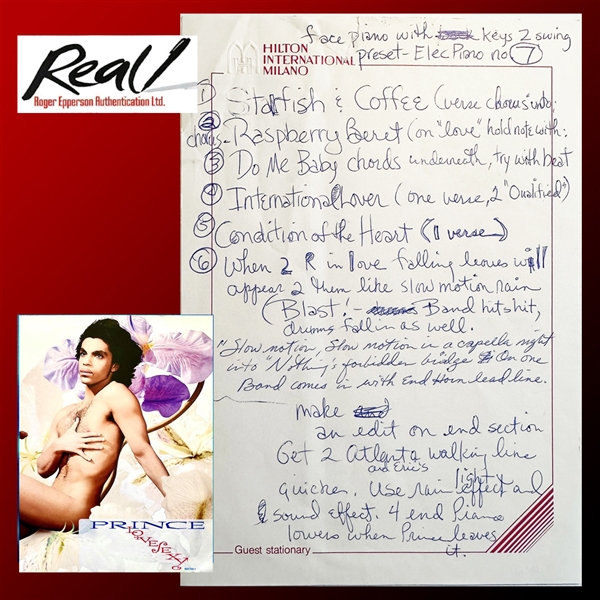 Real!
Roger Epperson Authentication Ltd.
HILTON
INTERNATIONAL
MILANO
face piano with keys 2 swing
preset - Elec Piano no 7
1 Starfish & Coffee (verse chorus into:
2 chorus - Raspberry Beret (on "love" hold note with:
3 Do Me Baby chords underneath, try with beat
4 International Lover (one verse, 2 "Qualified")
5 Condition of the Heart (1 verse)
6 When 2 R in love falling leaves will
appear 2 them like slow motion rain
(Blast! - Band hits hit,
drums fall in as well.
"Slow motion, Slow motion in a capella right
into "Nothing's forbidden bridge On one
Band comes in with End Horn lead line.
make
an edit on end section
Get 2 Atlanta walking line
and Eric's
quicker. Use rain light effect and
sound effect. 4 end Piano
lowers when Prince leaves
it.
Guest stationary
PRINCE
LOVESEXY